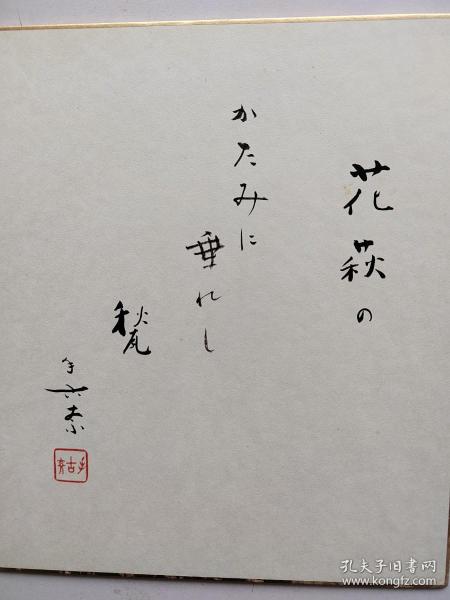 花萩の
かたみに
垂れし
甃
手古奈
手古奈
孔夫子旧书网
www.kongfz.com